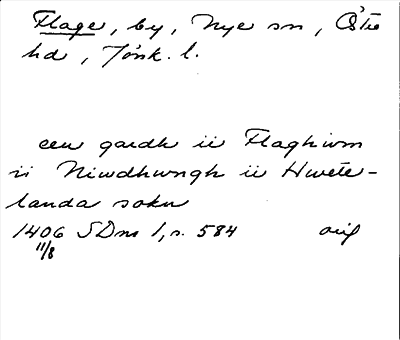 Flage, by, Nye sn, Östra
hd, Jönk. l.
een gardh ii Flaghwm
ii Niudhwngh ii Hwete-
landa sokn
1406 SDns 1, s. 584 orig
11/8